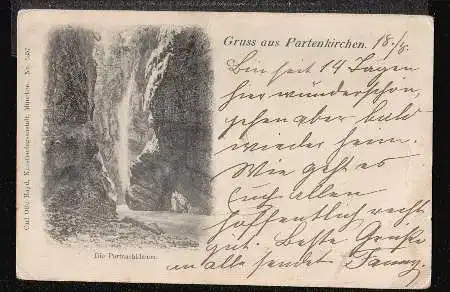 Gruss aus Partenkirchen. 18./8.
Bin seit 14 Tagen
hier wunderschön,
gehen aber bald
wieder heim.
Wie geht es
Euch allen
hoffentlich recht
gut. Beste Grüße
an alle sendet Fanny.
Die Partnachklamm.
Carl Otto Hayd, Kunstverlagsanstalt, München.